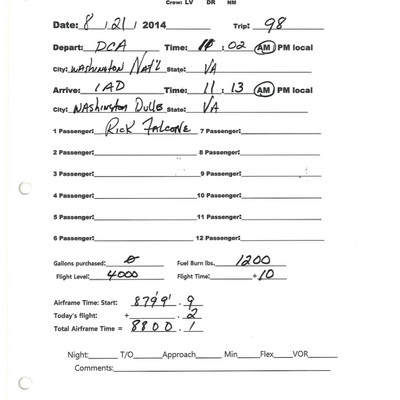 Crew: LV DR NM
Date: 8 / 21 / 2014 Trip: 98
Depart: DCA Time: : 02 AM PM local
City: Washington Nat'l State: VA
Arrive: IAD Time: 11 : 13 AM PM local
City: Washington Dulles State: VA
1 Passenger: Rick Falcone 7 Passenger:
2 Passenger: 8 Passenger:
3 Passenger: 9 Passenger:
4 Passenger: 10 Passenger:
5 Passenger: 11 Passenger:
6 Passenger: 12 Passenger:
Gallons purchased: 0 Fuel Burn lbs. 1200
Flight Level: 4000 Flight Time: +10
Airframe Time: Start: 8799.9
Today's flight: + .2
Total Airframe Time = 8800.1
Night: T/O Approach Min Flex VOR
Comments: